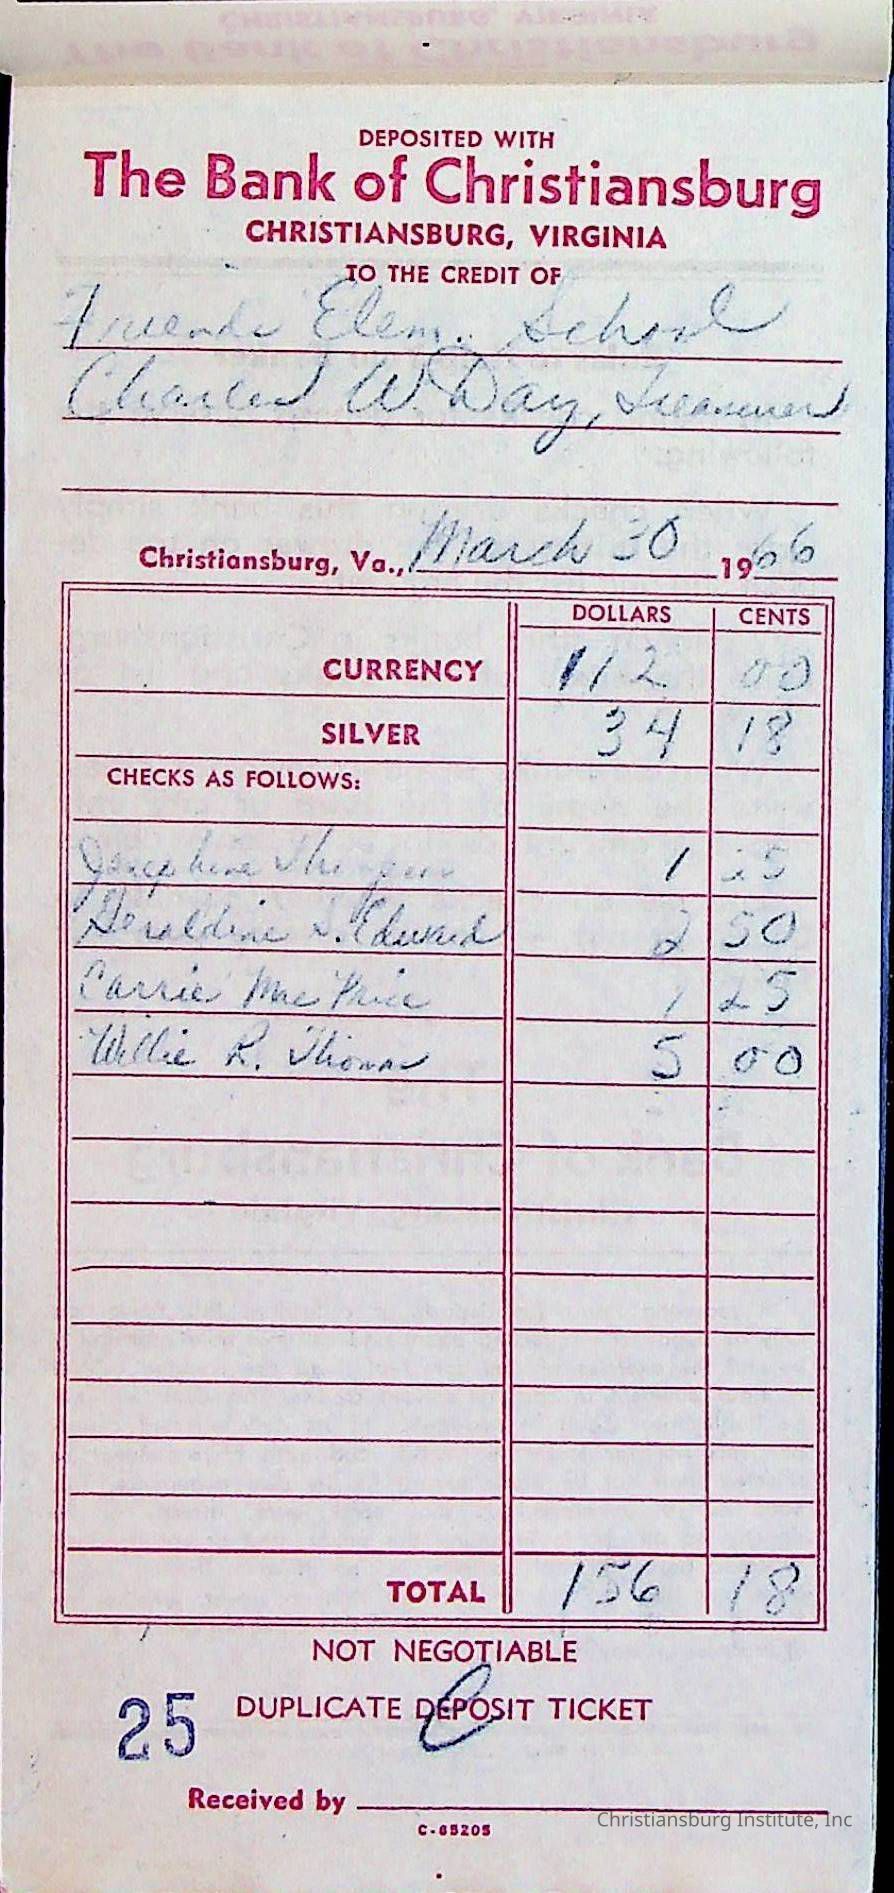 DEPOSITED WITH
The Bank of Christiansburg
CHRISTIANSBURG, VIRGINIA
TO THE CREDIT OF
Friends Elem. School
Charles W. Day, Treasurer
Christiansburg, Va., March 30 1966
DOLLARS CENTS
CURRENCY 112 00
SILVER 34 18
CHECKS AS FOLLOWS:
Josephine 1 25
Geraldine S. Edward 2 50
Carrie Mae Price 1 25
Willie R. Thomas 5 00
TOTAL 156 18
NOT NEGOTIABLE
25 DUPLICATE DEPOSIT TICKET
Received by
Christiansburg Institute, Inc
C-65205